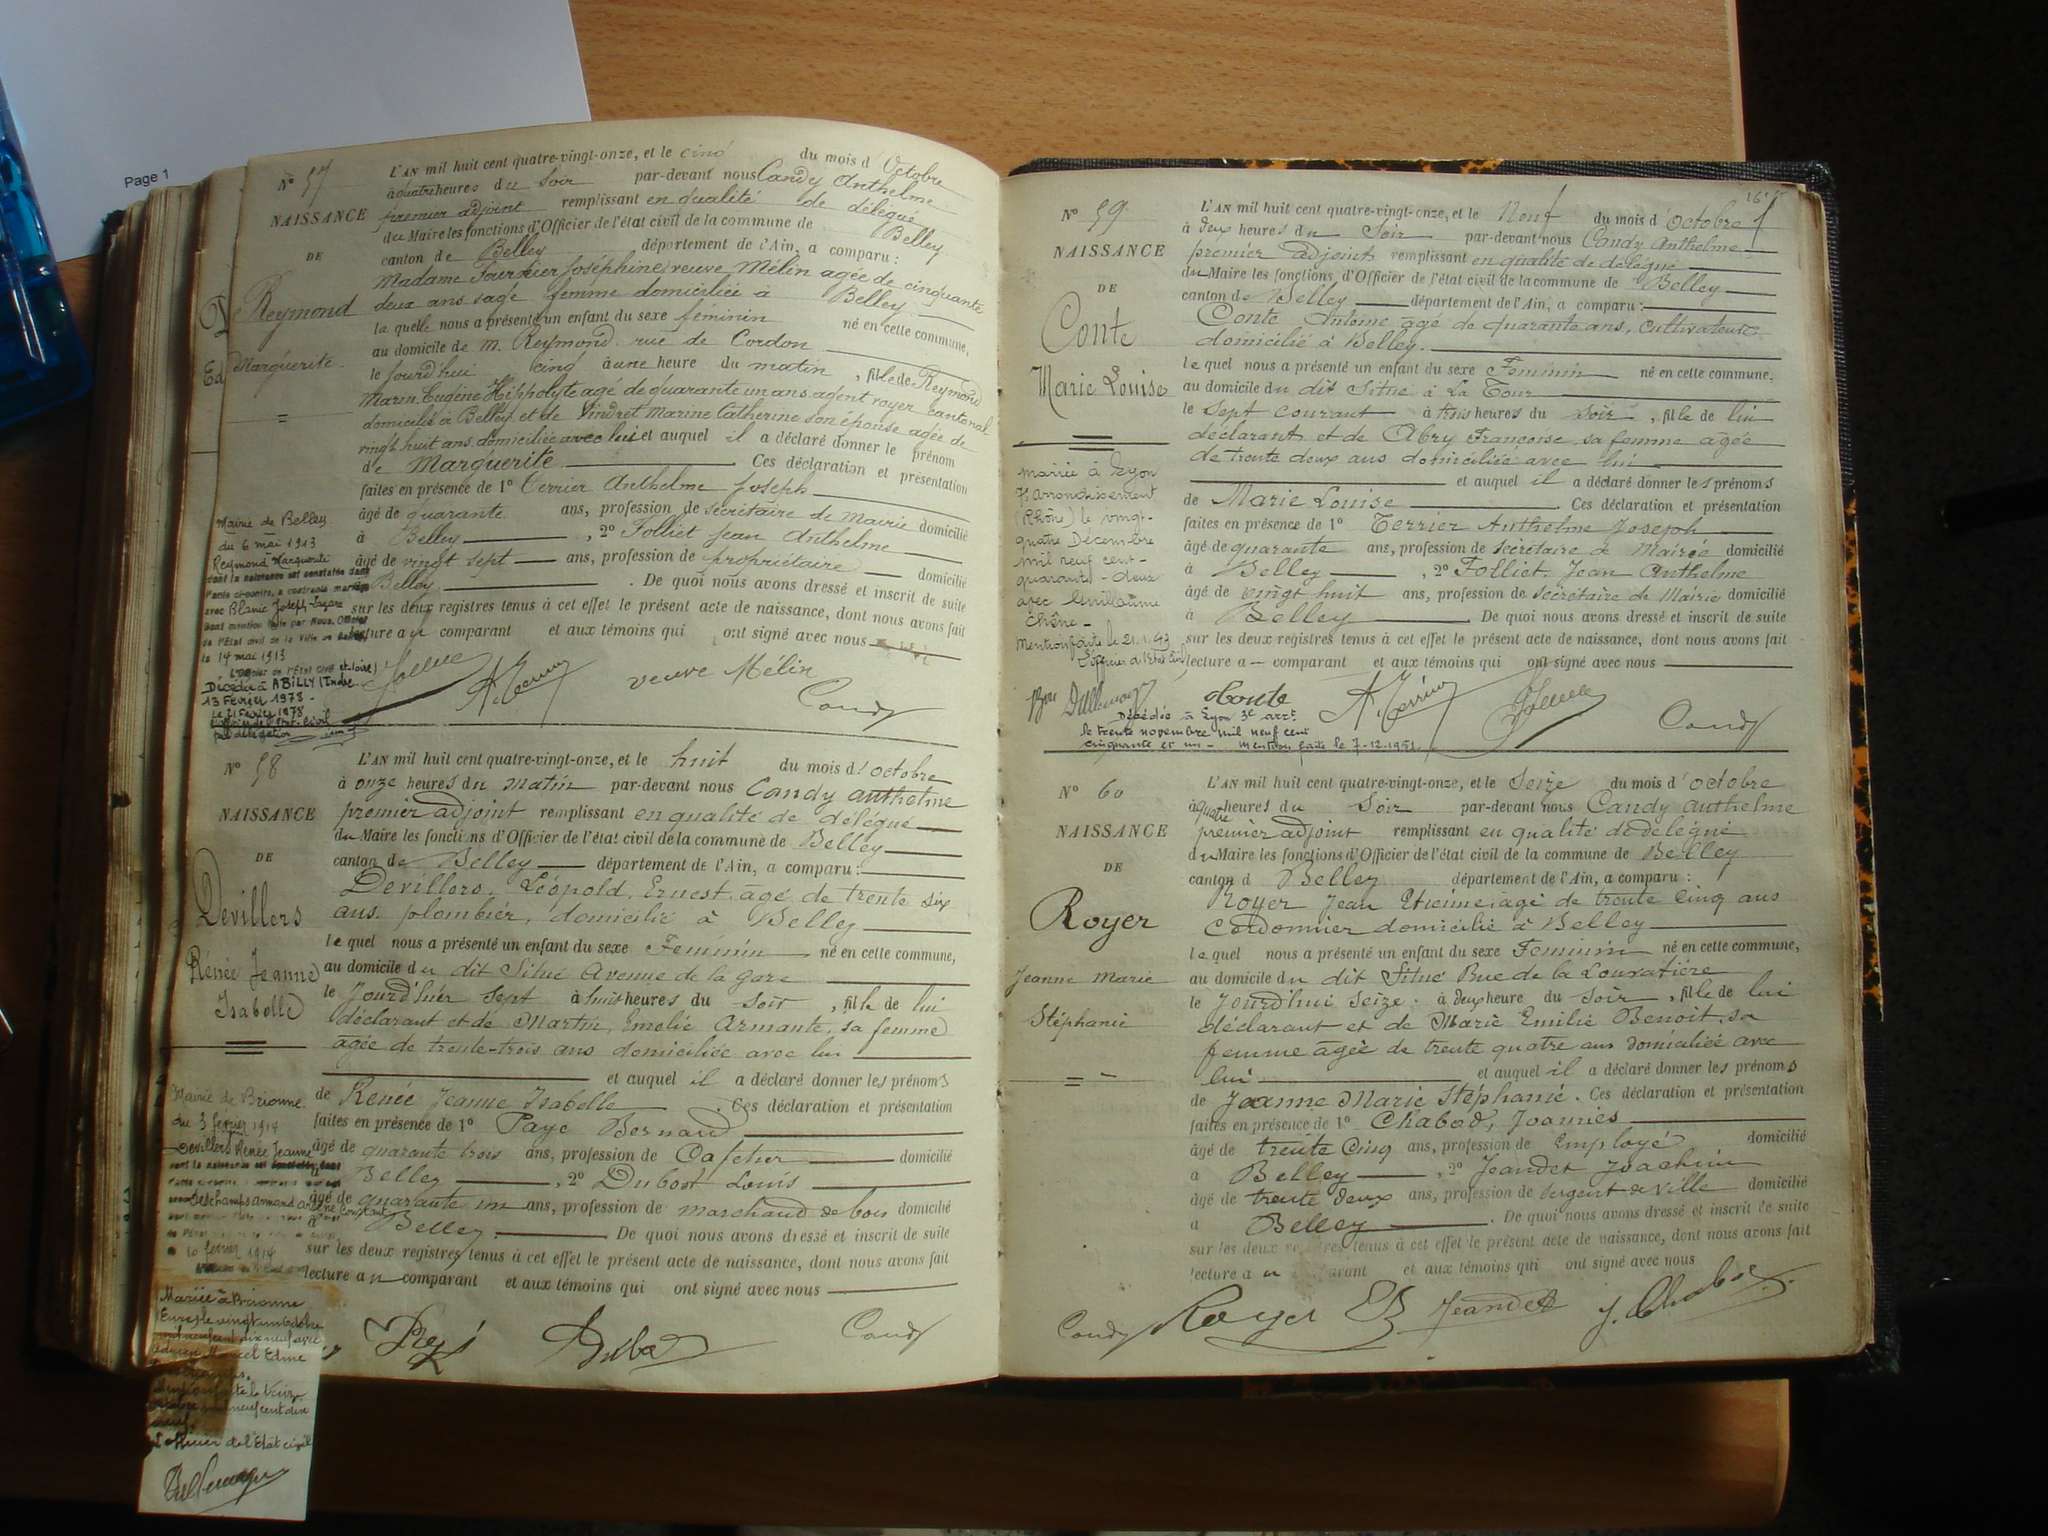 Page 1
N° 57
NAISSANCE
DE
Reymond
Marguerite
L'AN mil huit cent quatre-vingt-onze, et le cinq du mois d'Octobre
à quatre heures du Soir par-devant nous Candy Anthelme
premier adjoint remplissant en qualité de délégué
du Maire les fonctions d'Officier de l'état civil de la commune de Belley
canton de Belley département de l'Ain, a comparu :
Madame Fournier Joséphine veuve Mélin agée de cinquante
deux ans sage femme domiciliée à Belley
laquelle nous a présenté un enfant du sexe feminin né en cette commune,
au domicile de M. Reymond rue de Cordon
le jourd'hui cinq à une heure du matin, fille de Reymond
Marin Eugène Hippolyte agé de quarante un ans agent voyer cantonal
domicilié à Belley et de Vindret Marine Catherine son épouse agée de
vingt huit ans domiciliée avec lui et auquel il a déclaré donner le prénom
de Marguerite Ces déclaration et présentation
faites en présence de 1° Terrier Anthelme Joseph
âgé de quarante ans, profession de secrétaire de Mairie domicilié
à Belley, 2° Folliet Jean Anthelme
âgé de vingt sept ans, profession de propriétaire domicilié
à Belley. De quoi nous avons dressé et inscrit de suite
sur les deux registres tenus à cet effet le présent acte de naissance, dont nous avons fait
lecture au comparant et aux témoins qui ont signé avec nous
veuve Mélin
Candy
Mairie de Belley
du 6 mai 1913
Reymond Marguerite
dont la naissance est constatée dans
l'acte ci-contre, a contracté mariage
avec Blanc Joseph-Lazare
le 14 mai 1913
Décédée à ABILLY (Indre et Loire)
13 Février 1978 -
Le 21 Février 1978
N° 58
NAISSANCE
DE
Devillers
Rénée Jeanne
Isabelle
L'AN mil huit cent quatre-vingt-onze, et le huit du mois d'octobre
à onze heures du matin par-devant nous Candy anthelme
premier adjoint remplissant en qualité de délégué
du Maire les fonctions d'Officier de l'état civil de la commune de Belley
canton de Belley département de l'Ain, a comparu :
Devillers, Léopold, Ernest, âgé de trente six
ans, plombier, domicilié à Belley
lequel nous a présenté un enfant du sexe Feminin né en cette commune,
au domicile du dit Situé Avenue de la gare
le Jourd'hier sept à huit heures du soir, fille de lui
déclarant et de Martin, Emelie Armante, sa femme
agée de trente-trois ans domiciliée avec lui
et auquel il a déclaré donner les prénoms
de Renée Jeanne Isabelle. Ces déclaration et présentation
faites en présence de 1° Paye Bernard
âgé de quarante trois ans, profession de Cafetier domicilié
Belley, 2° Dubost Louis
âgé de quarante un ans, profession de marchand de bois domicilié
à Belley. De quoi nous avons dressé et inscrit de suite
sur les deux registres tenus à cet effet le présent acte de naissance, dont nous avons fait
lecture au comparant et aux témoins qui ont signé avec nous
Candy
Mairie de Brionne
du 3 février 1914
Devillers Renée Jeanne
Deschamps Armand
10 février 1914
Mariée à Brionne
l'officier de l'Etat civil
N° 59
NAISSANCE
DE
Conte
Marie Louise
L'AN mil huit cent quatre-vingt-onze, et le Neuf du mois d'octobre
à deux heures du Soir par-devant nous Candy anthelme
premier adjoint remplissant en qualité de délégué
du Maire les fonctions d'Officier de l'état civil de la commune de Belley
canton de Belley département de l'Ain, a comparu :
Conte Antoine âgé de quarante ans, Cultivateur
domicilié à Belley.
lequel nous a présenté un enfant du sexe Feminin né en cette commune,
au domicile du dit Situé à La Tour
le sept courant à trois heures du soir, fille de lui
déclarant et de Abry Françoise sa femme agée
de trente deux ans domiciliée avec lui
et auquel il a déclaré donner les prénoms
de Marie Louise. Ces déclaration et présentation
faites en présence de 1° Terrier Anthelme Joseph
âgé de quarante ans, profession de Secrétaire de Mairie domicilié
à Belley, 2° Folliet, Jean Anthelme
âgé de vingt huit ans, profession de secrétaire de Mairie domicilié
à Belley De quoi nous avons dressé et inscrit de suite
sur les deux registres tenus à cet effet le présent acte de naissance, dont nous avons fait
lecture a comparant et aux témoins qui ont signé avec nous
Conte
Candy
mariée à Lyon
arrondissement
(Rhône) le vingt-
quatre Décembre
mil neuf cent-
quarante-deux
avec Guillaume
Chêne -
Mention faite le 21.1.43
L'officier d'Etat Civil
Décédée à Lyon 3e arrt
le trente novembre mil neuf cent
cinquante et un - mention faite le 7-12.1951.
N° 60
NAISSANCE
DE
Royer
Jeanne Marie
Stéphanie
L'AN mil huit cent quatre-vingt-onze, et le Seize du mois d'octobre
à quatre heures du Soir par-devant nous Candy anthelme
premier adjoint remplissant en qualité de délégué
du Maire les fonctions d'Officier de l'état civil de la commune de Belley
canton d Belley département de l'Ain, a comparu :
Royer Jean Etienne, agé de trente cinq ans
Cordonnier domicilié à Belley
lequel nous a présenté un enfant du sexe Feminin né en cette commune,
au domicile du dit Situé Rue de la Louvatière
le Jourd'hui seize à deux heure du soir, fille de lui
déclarant et de Marie Emilie Benoit, sa
femme âgée de trente quatre ans domiciliée avec
lui et auquel il a déclaré donner les prénoms
de Jeanne Marie Stéphanie. Ces déclaration et présentation
faites en présence de 1° Chabod, Joannès
âgé de trente Cinq ans, profession de Employé domicilié
à Belley, 2° Jeandet Joachim
âgé de trente deux ans, profession de sergent de ville domicilié
à Belley. De quoi nous avons dressé et inscrit de suite
sur les deux registres tenus à cet effet le présent acte de naissance, dont nous avons fait
lecture au comparant et aux témoins qui ont signé avec nous
Candy Royer Jeandet J. Chabod